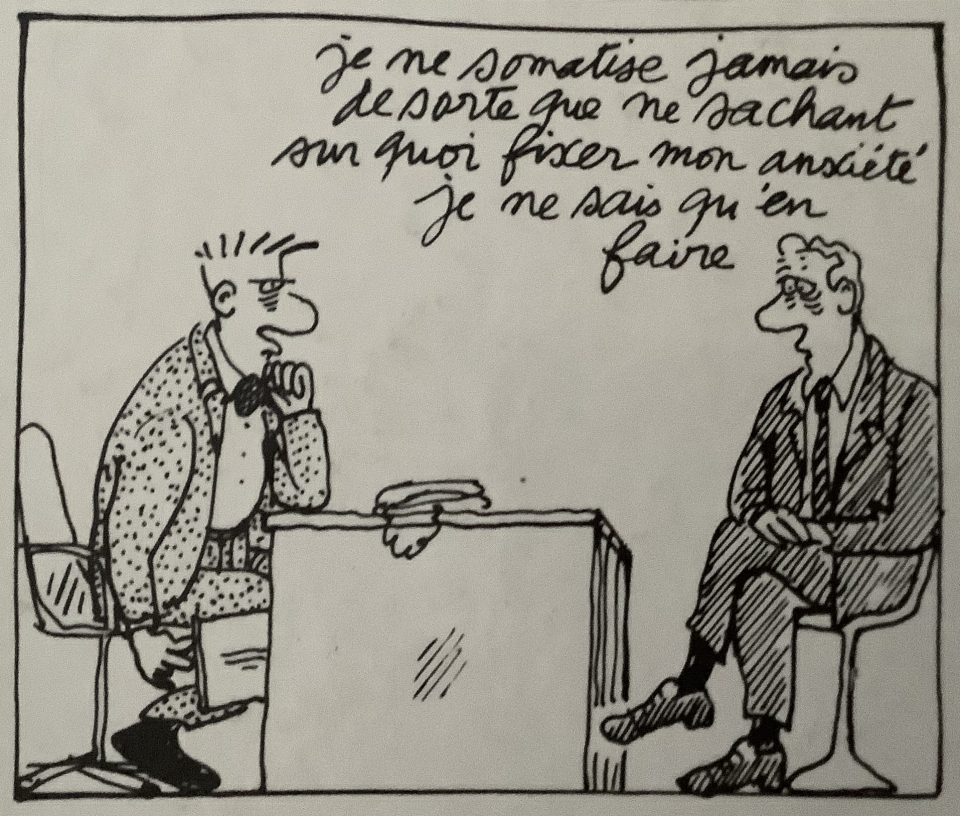 je ne somatise jamais
de sorte que ne sachant
sur quoi fixer mon anxiété
je ne sais qu'en
faire